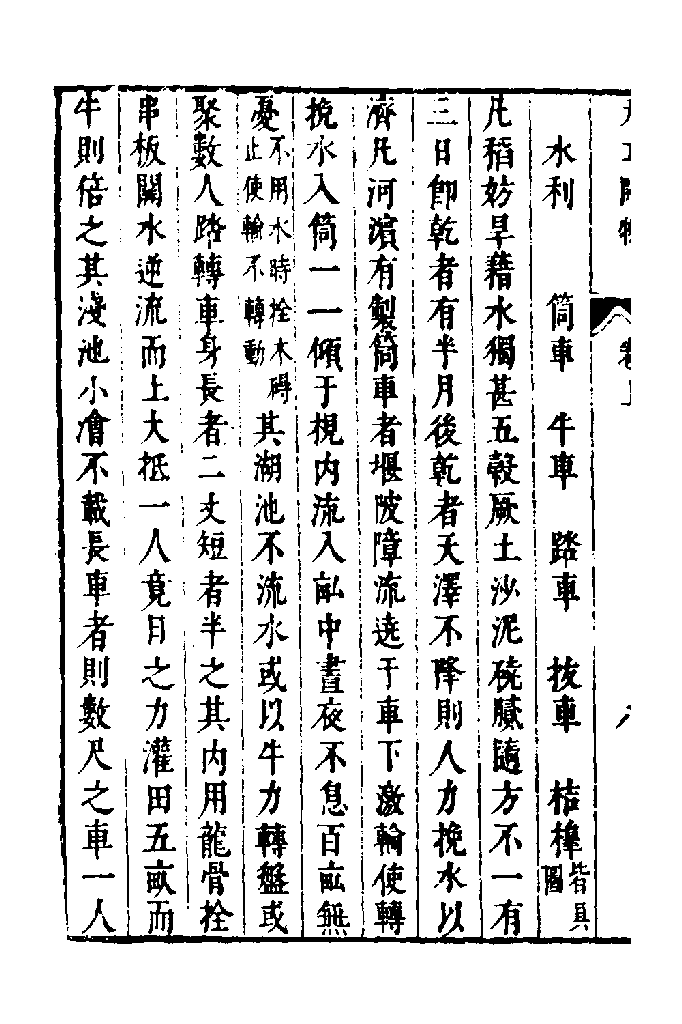 水利　筒車　牛車　踏車　拔車　桔槹皆具圖
凡稻妨旱藉水獨甚五穀厥土沙泥硗膩隨方不一有
三日卽乾者有半月後乾者天澤不降則人力挽水以
濟凡河濱有製筒車者堰陂障流遶于車下激輪使轉
挽水入筒一一傾于梘內流入畝中晝夜不息百畝無
憂不用水時拴木碍止使輪不轉動其湖池不流水或以牛力轉盤或
聚數人踏轉車身長者二丈短者半之其內用龍骨拴
串板關水逆流而上大抵一人竟日之力灌田五畝而
牛則倍之其淺池小澮不載長車者則數尺之車一人